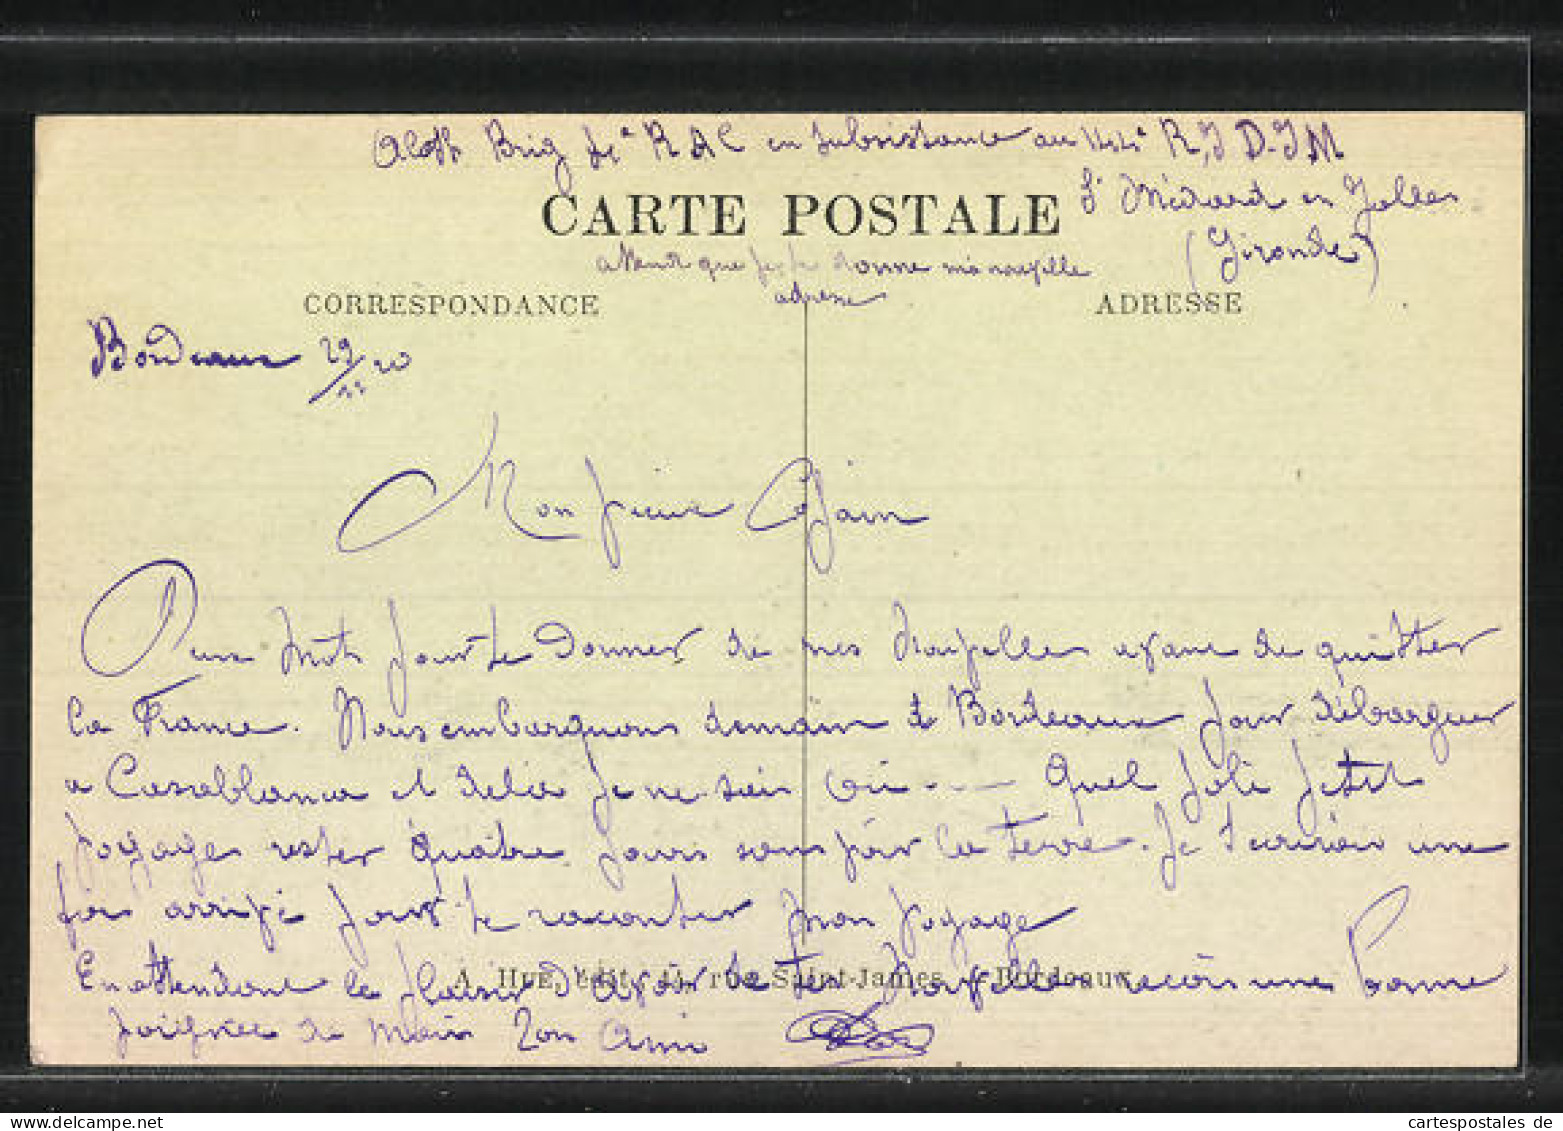 Brig 1er RAC en subsistance au 144e R, I D-I M
CARTE POSTALE
St Médard en Jalles
(Gironde)
avant que je te donne ma nouvelle
adresse
CORRESPONDANCE
ADRESSE
Bordeaux 29/11 20
Mon vieux
Deux mots pour te donner de mes nouvelles avant de quitter
la France. Nous embarquons demain à Bordeaux pour débarquer
a Casablanca et delà je ne sais où... Quel joli petit
voyage rester quatre jours sans voir la terre. Je t'écrirai une
fois arrivé pour te raconter mon voyage
En attendant le plaisir d'avoir de tes nouvelles recois une bonne
A. HUE, édit., 44, rue Saint-James, Bordeaux
poignée de main Ton Ami
cartespostales de